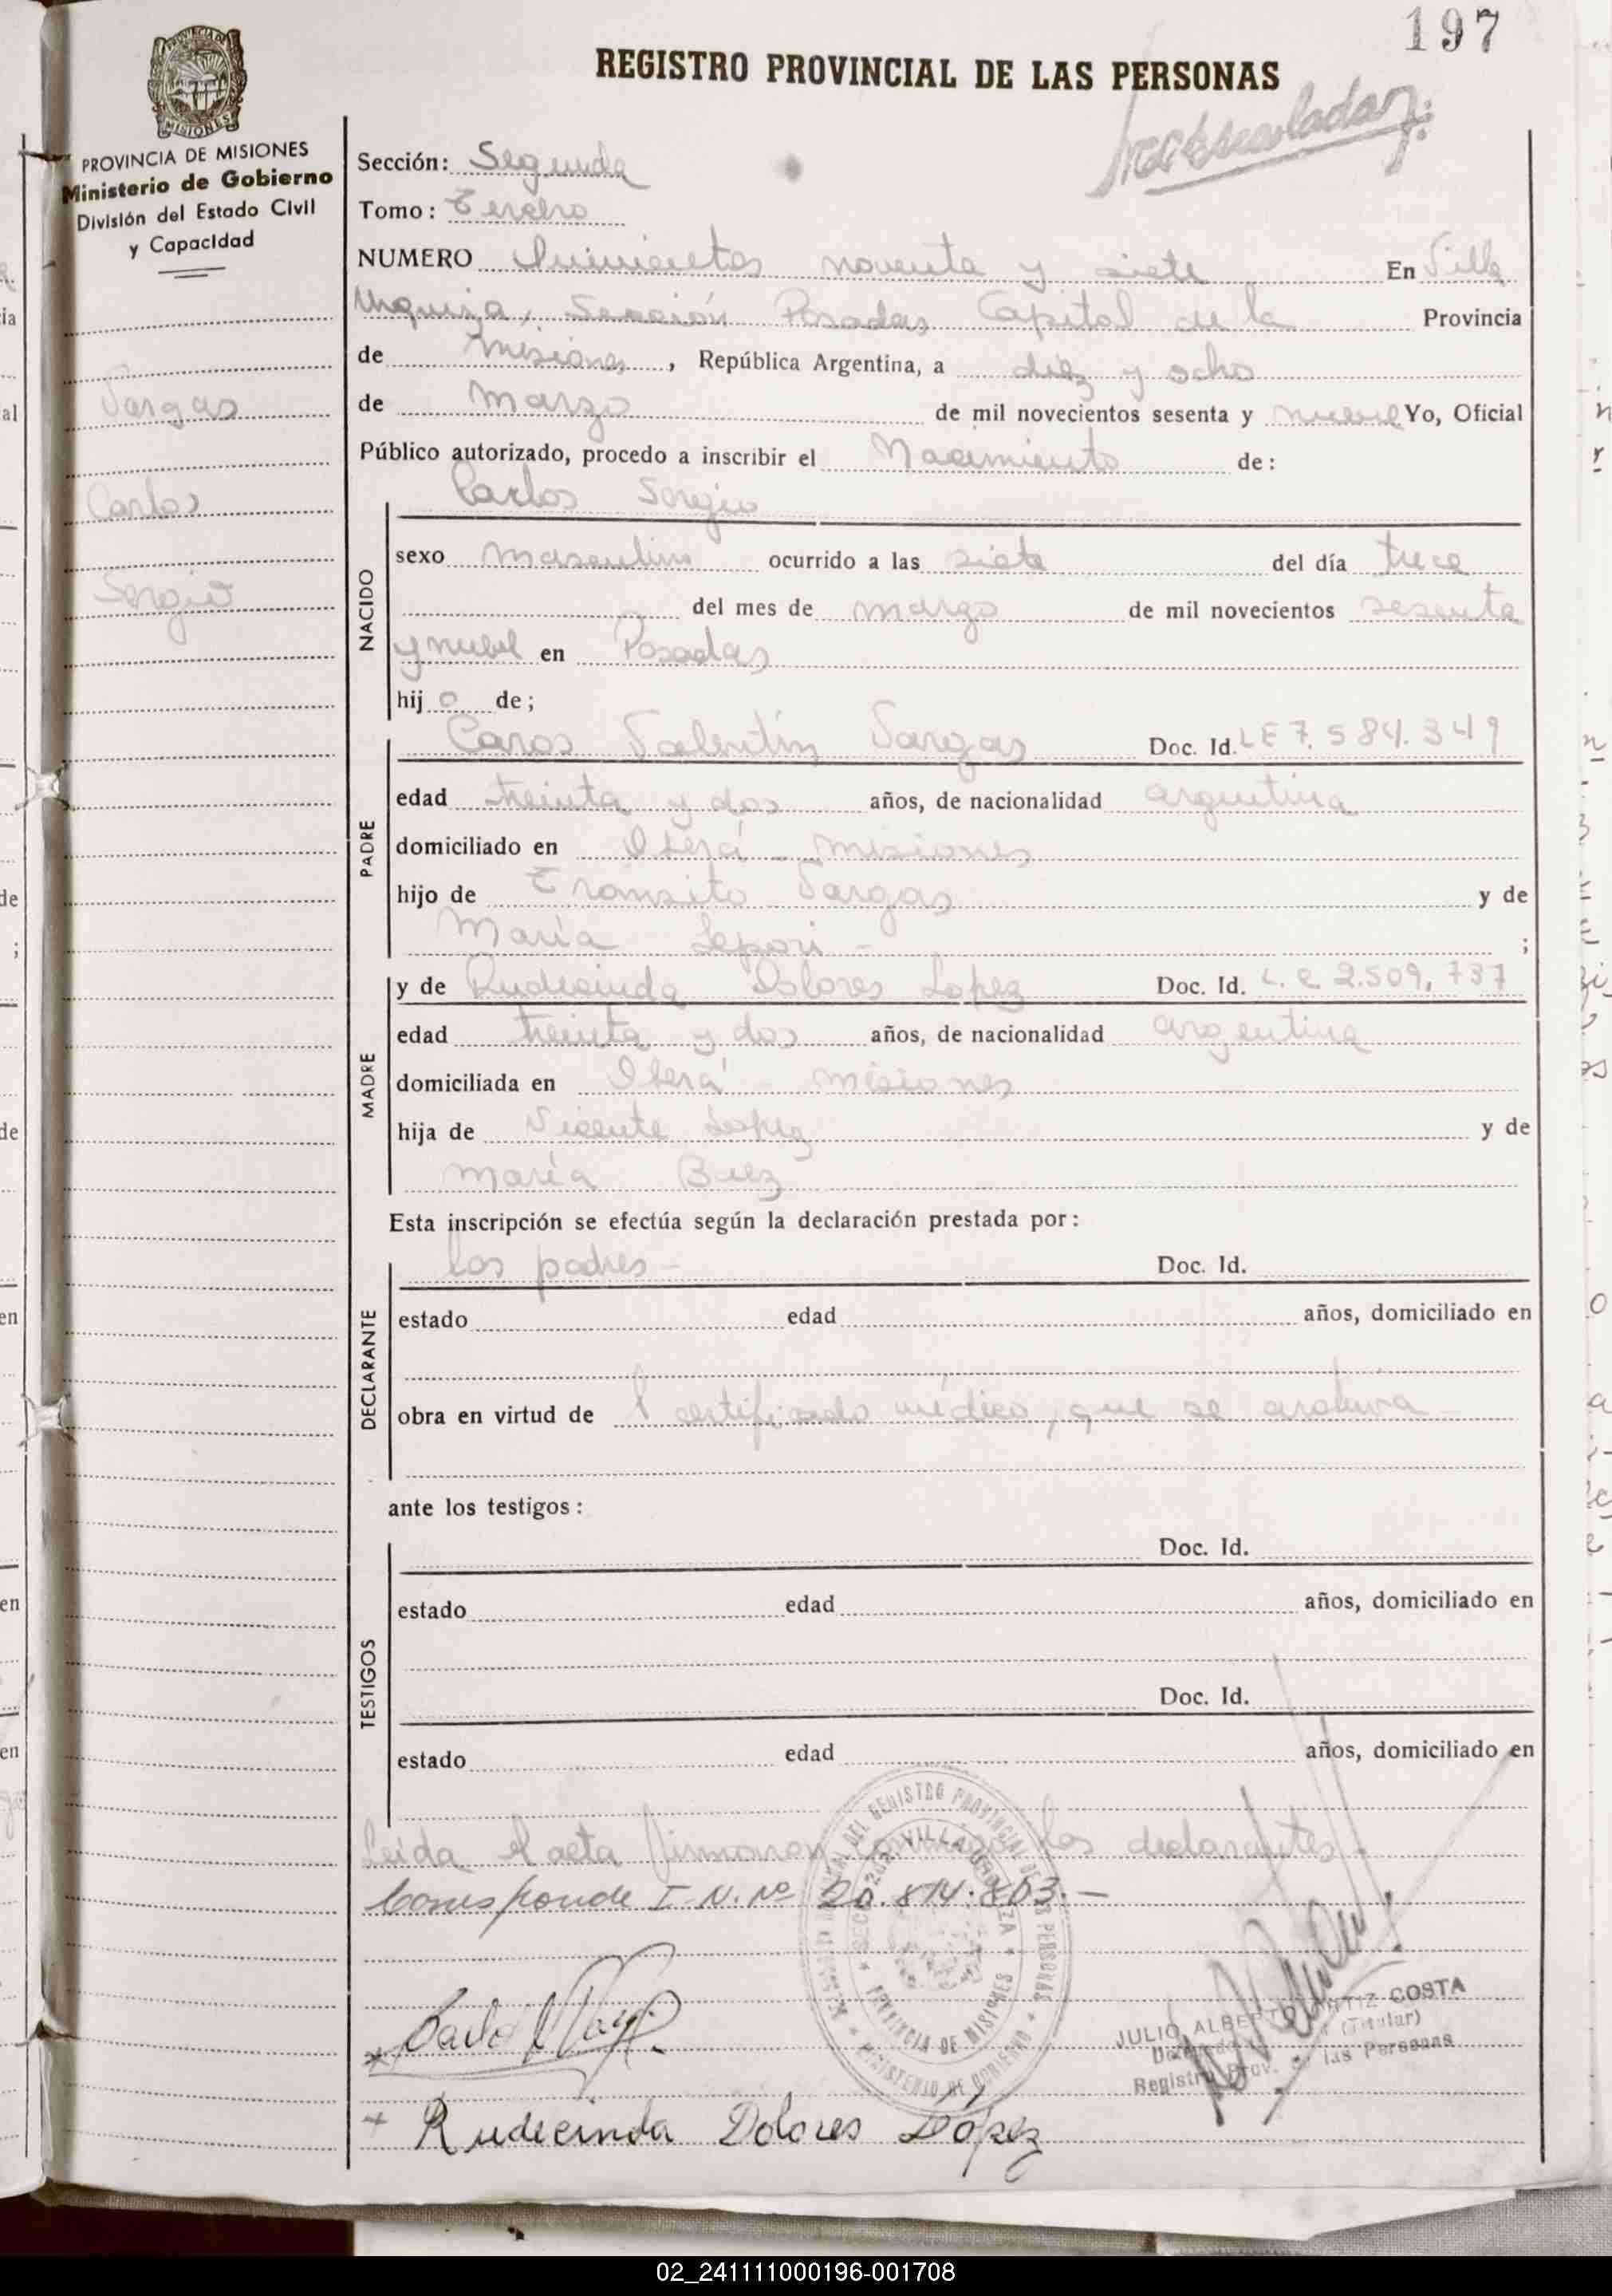 197
REGISTRO PROVINCIAL DE LAS PERSONAS
Matriculado
MISIONES
PROVINCIA DE MISIONES
Ministerio de Gobierno
División del Estado Civil
y Capacidad
Vargas
Carlos
Sergio
Sección: Segunda
Tomo: Tercero
NUMERO Quinientos noventa y siete En Villa
Urquiza, Sección Posadas Capital de la Provincia
de Misiones, República Argentina, a diez y ocho
de Marzo de mil novecientos sesenta y nueve Yo, Oficial
Público autorizado, procedo a inscribir el Nacimiento de:
Carlos Sergio
NACIDO
sexo masculino ocurrido a las siete del día trece
del mes de marzo de mil novecientos sesenta
y nueve en Posadas
hijo de;
PADRE
Caros Valentín Vargas Doc. Id. LE 7.584.349
edad treinta y dos años, de nacionalidad argentina
domiciliado en Oberá - misiones
hijo de Tránsito Vargas y de
María Lepori - ;
MADRE
y de Rudecinda Dolores Lopez Doc. Id. L.C. 2.509.737
edad treinta y dos años, de nacionalidad argentina
domiciliada en Oberá - misiones
hija de Vicente Lopez y de
maría Baez
Esta inscripción se efectúa según la declaración prestada por:
DECLARANTE
los padres - Doc. Id.
estado edad años, domiciliado en
obra en virtud de l certificado médico, que se archiva -
ante los testigos:
TESTIGOS
Doc. Id.
estado edad años, domiciliado en
Doc. Id.
estado edad años, domiciliado en
Leida el acta firmaron conmigo los declarantes.
Corresponde I. N. Nº 20.814.803.-
DEL REGISTRO PROVINCIAL DE LAS PERSONAS
MINISTERIO DE GOBIERNO
VILLA URQUIZA
PROVINCIA DE MISIONES
JULIO ALBERTO ORTIZ COSTA
Delegado (Titular)
Registro Prov. de las Personas
Rudecinda Dolores López
02_241111000196-001708